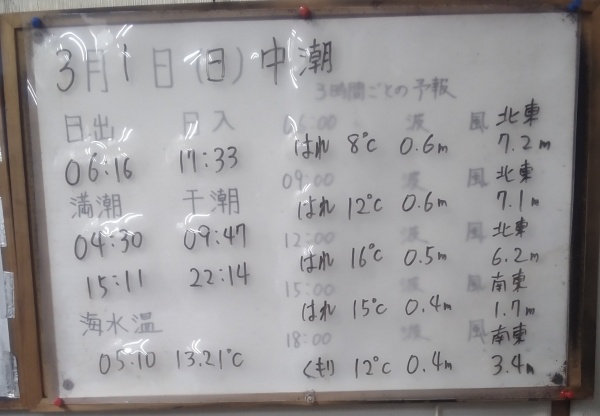 3月1日(日)中潮
日出 日入
06:16 17:33
満潮 干潮
04:30 09:47
15:11 22:14
海水温
05:10 13.21℃
3時間ごとの予報
06:00 波 風 北東
はれ 8℃ 0.6m 7.2m
09:00 波 風 北東
はれ 12℃ 0.6m 7.1m
12:00 波 風 北東
はれ 16℃ 0.5m 6.2m
15:00 波 風 南東
はれ 15℃ 0.4m 1.7m
18:00 波 風 南東
くもり 12℃ 0.4m 3.4m